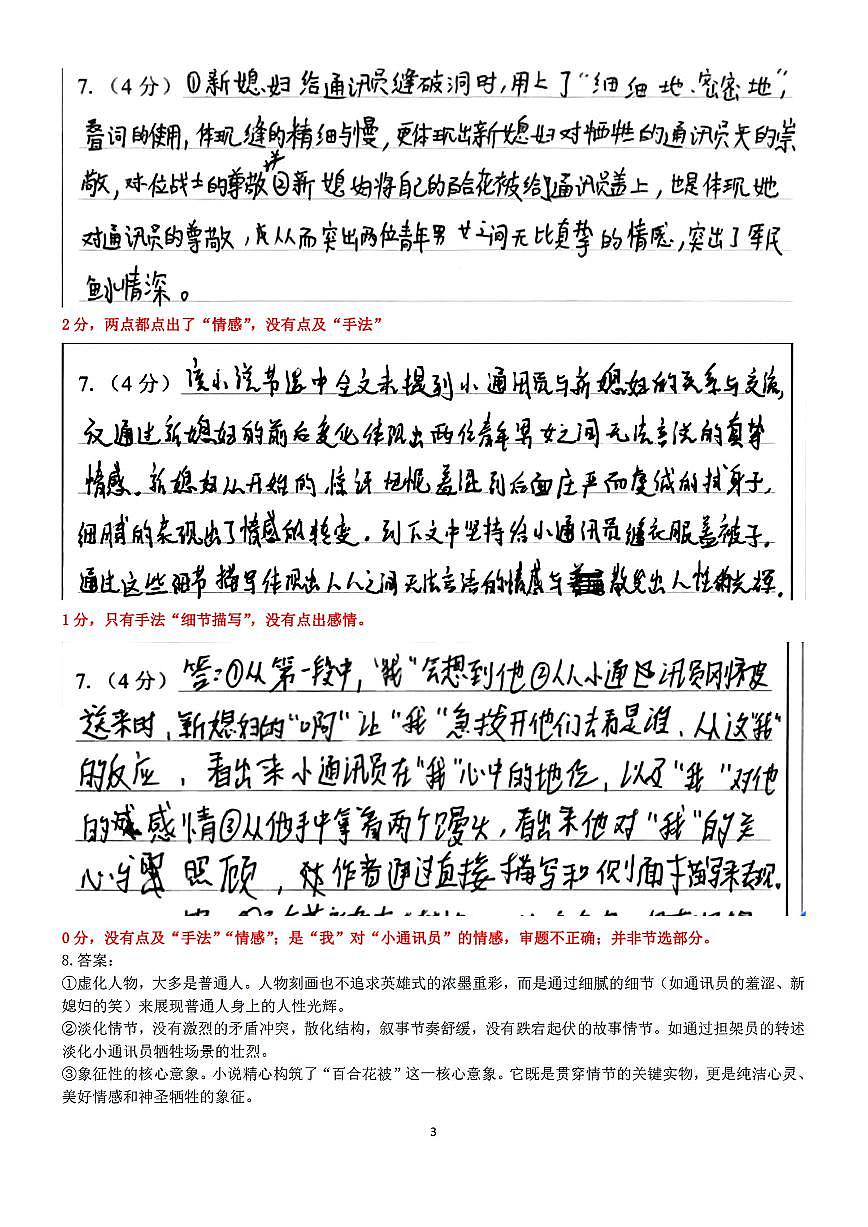 7.（4 分）①新媳妇给通讯员缝破洞时,用上了“细细地、密密地”,
叠词的使用,体现缝的精细与慢,更体现出新媳妇对牺牲的通讯员的崇
敬,对位战士的尊敬②新媳妇将自己的百合花被给通讯员盖上,也是体现她
对通讯员的尊敬,从而突出两位青年男女之间无比真挚的情感,突出了军民
鱼水情深。
2 分，两点都点出了“情感”，没有点及“手法”
7.（4 分）该小说节选中全文未提到小通讯员与新媳妇的关系与交流,
仅通过新媳妇的前后变化体现出两位青年男女之间无法言说的真挚
情感。新媳妇从开始的惊讶忸怩羞涩到后面庄严而虔诚的拭身子,
细腻的表现出了情感的转变。到下文中坚持给小通讯员缝衣服盖被子。
通过这些细节描写体现出人人之间无法言语的情感与散发出人性的光辉.
1 分，只有手法“细节描写”，没有点出感情。
7.（4 分）答:①从第一段中,“我”会想到他②从小通讯员刚被
送来时,新媳妇的“啊”让“我”急拨开他们去看是谁、从这“我”
的反应,看出来小通讯员在“我”心中的地位,以及“我”对他
的感情③从他手中拿着两个馒头,看出来他对“我”的关
心与照顾,作者通过直接描写和侧面描写来表现.
0 分，没有点及“手法”“情感”；是“我”对“小通讯员”的情感，审题不正确；并非节选部分。
8.答案：
①虚化人物，大多是普通人。人物刻画也不追求英雄式的浓墨重彩，而是通过细腻的细节（如通讯员的羞涩、新
媳妇的笑）来展现普通人身上的人性光辉。
②淡化情节，没有激烈的矛盾冲突，散化结构，叙事节奏舒缓，没有跌宕起伏的故事情节。如通过担架员的转述
淡化小通讯员牺牲场景的壮烈。
③象征性的核心意象。小说精心构筑了“百合花被”这一核心意象。它既是贯穿情节的关键实物，更是纯洁心灵、
美好情感和神圣牺牲的象征。
3